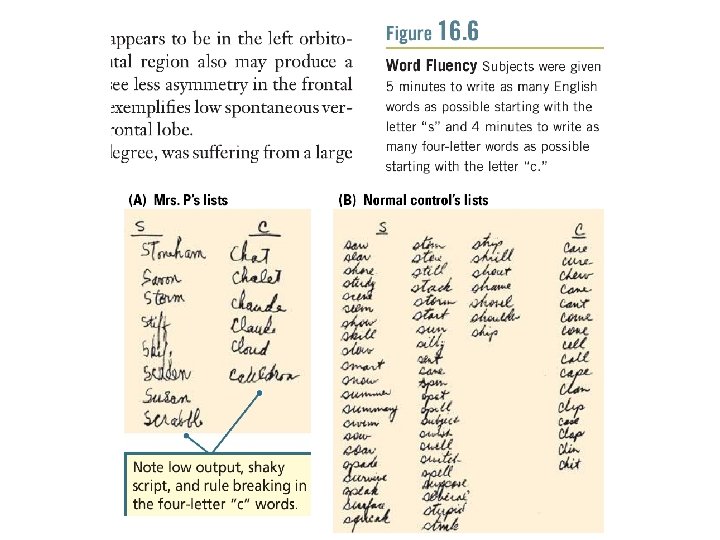 appears to be in the left orbito-
ntal region also may produce a
see less asymmetry in the frontal
exemplifies low spontaneous ver-
rontal lobe.
degree, was suffering from a large
Figure 16.6
Word Fluency Subjects were given
5 minutes to write as many English
words as possible starting with the
letter “s” and 4 minutes to write as
many four-letter words as possible
starting with the letter “c.”
(A) Mrs. P’s lists
S C
Stoneham Chat
Saron Chalet
Storm Chaude
Stift Claude
Cloud
Cauldron
Susan
Scrabble
Note low output, shaky
script, and rule breaking in
the four-letter “c” words.
(B) Normal control’s lists
S
saw
slar
shore
sturdy
scene
seem
show
skill
slow
smart
snow
summer
summary
swim
sow
soar
spade
survive
speak
surface
squeak
stem
stew
still
stack
storm
start
sun
silly
sent
sane
spin
spot
spill
subject
swish
swell
switch
spell
suppose
several
stupid
stink
strip
shrill
shout
shame
shovel
shoulder
ship
C
care
cure
chew
cane
can't
come
cone
cell
call
cape
clan
clip
case
clap
chin
chit